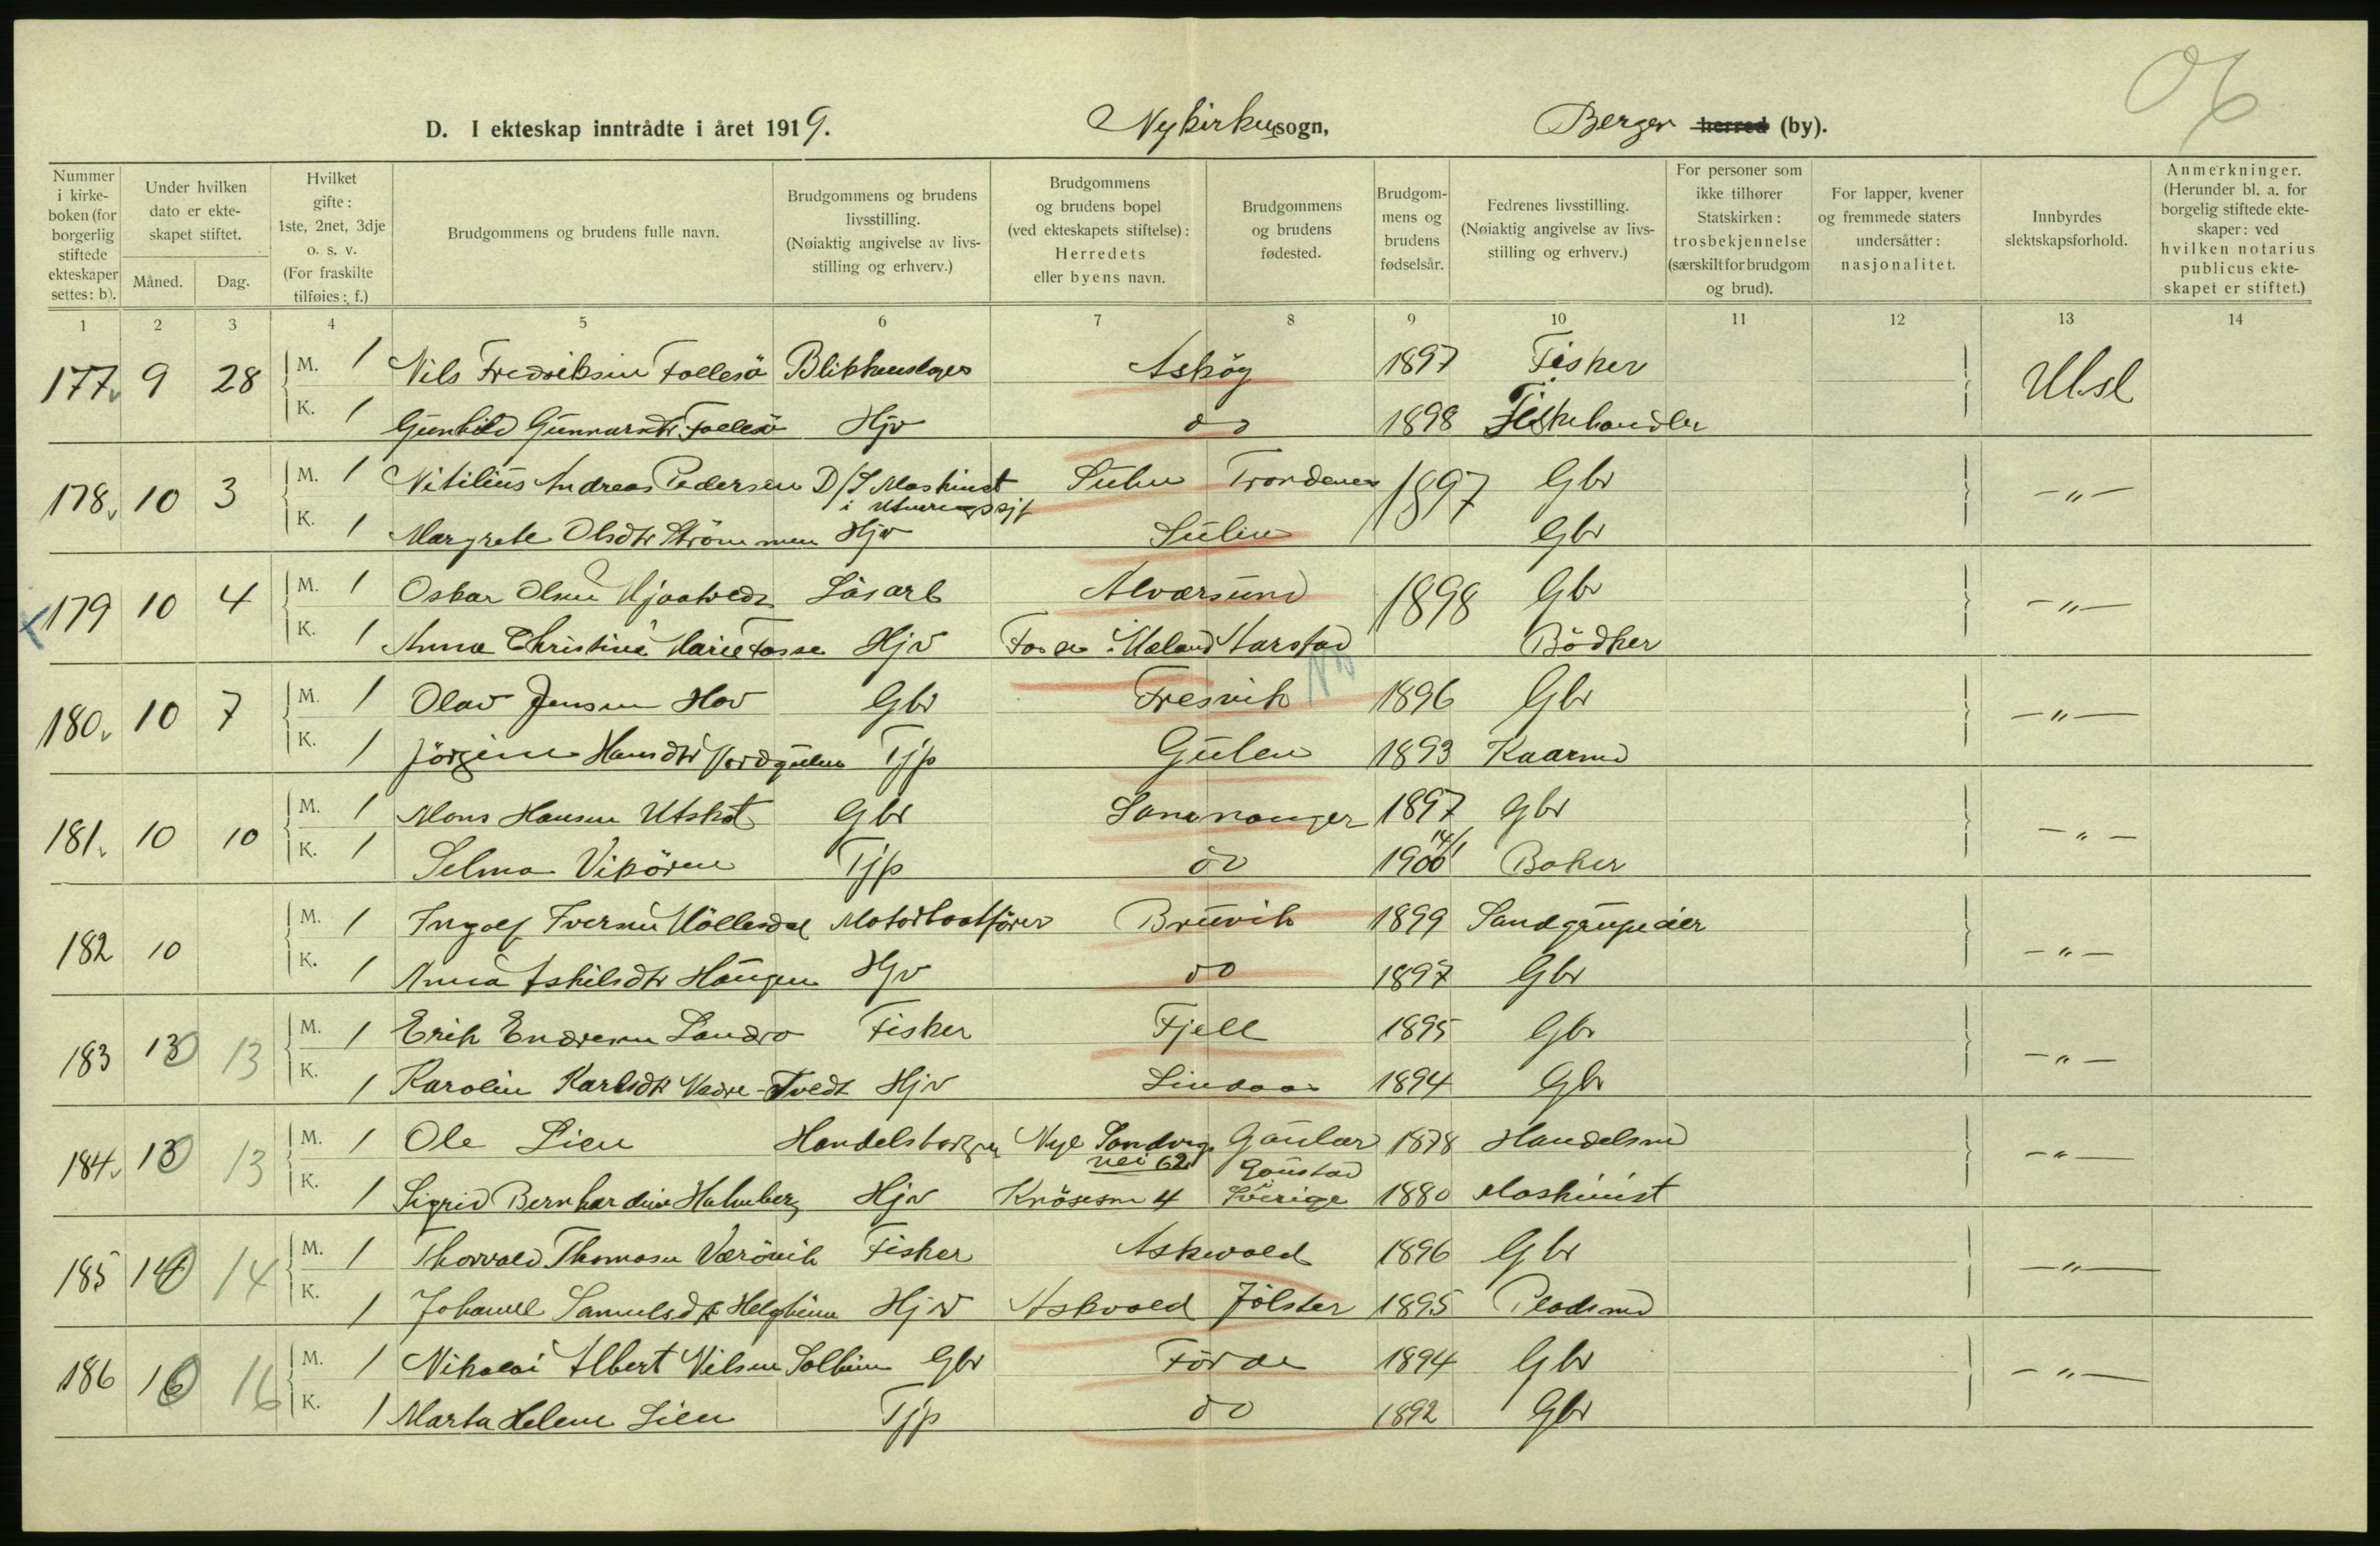 D. I ekteskap inntrådte i året 1919. Nykirkesogn, Bergen herred (by).
Nummer i kirkeboken (for borgerlig stiftede ekteskaper settes: b).
Under hvilken dato er ekteskapet stiftet.
Måned. Dag.
Hvilket gifte: 1ste, 2net, 3dje o. s. v. (For fraskilte tilføies: f.)
Brudgommens og brudens fulle navn.
Brudgommens og brudens livsstilling. (Nøiaktig angivelse av livsstilling og erhverv.)
Brudgommens og brudens bopel (ved ekteskapets stiftelse): Herredets eller byens navn.
Brudgommens og brudens fødested.
Brudgommens og brudens fødselsår.
Fedrenes livsstilling. (Nøiaktig angivelse av livsstilling og erhverv.)
For personer som ikke tilhører Statskirken: trosbekjennelse (særskilt for brudgom og brud).
For lapper, kvener og fremmede staters undersåtter: nasjonalitet.
Innbyrdes slektskapsforhold.
Anmerkninger. (Herunder bl. a. for borgelig stiftede ekteskaper: ved hvilken notarius publicus ekteskapet er stiftet.)
1 2 3 4 5 6 7 8 9 10 11 12 13 14
177 9 28 M. 1 Nils Fredriksen Follesö Blikkenslager Asköy 1897 Fisker Ubsl
K. 1 Gunhild Gunnarsdtr Follesö Hjv do 1898 Fiskehandler
178 10 3 M. 1 Andreas Pedersen D/S Maskinist Sulen Trondenes 1897 Gbr -"-
K. 1 Margrete Olsdtr Strömmen Hjv Sulen Gbr
179 10 4 M. 1 Oskar Olsen Lösarb Alversund 1898 Gbr -"-
K. 1 Anna Christine Marie Fosse Hjv Fosse Meland Harstad Bödker
180 10 7 M. 1 Olav Jensen Hov Gbr Fresvik 1896 Gbr -"-
K. 1 Jörgine Hansdtr Nordgulen Tjp Gulen 1893 Kaarmd
181 10 10 M. 1 Mons Hansen Utskot Gbr Samnanger 1897 Gbr -"-
K. 1 Selma Vikören Tjp do 14/1 1900 Baker
182 10 M. 1 Ingolf Iversen Möllesdal Motorbaatförer Bruvik 1899 Sandgrupeeier -"-
K. 1 Anna Askilsdtr Haugen Hjv do 1897 Gbr
183 10 13 M. 1 Erik Endresen Landro Fisker Fjell 1895 Gbr -"-
K. 1 Karolin Karlsdtr Nedre-Tvedt Hjv Lindaas 1894 Gbr
184 10 13 M. 1 Ole Lien Handelsborger Nye Sandvigsvei 62 Gaular 1878 Handelsmd -"-
K. 1 Sigrid Bernhardine Holmberg Hjv Knösesm 4 Sverige 1880 Maskinist
185 10 14 M. 1 Thorvald Thomasen Værövik Fisker Askvold 1896 Gbr -"-
K. 1 Johanne Samuelsdtr Helgheim Hjv Askvold Jölster 1895 Pladsmd
186 10 16 M. 1 Nikolai Albert Nilsen Solheim Gbr Förde 1894 Gbr -"-
K. 1 Marta Helene Lien Tjp do 1892 Gbr